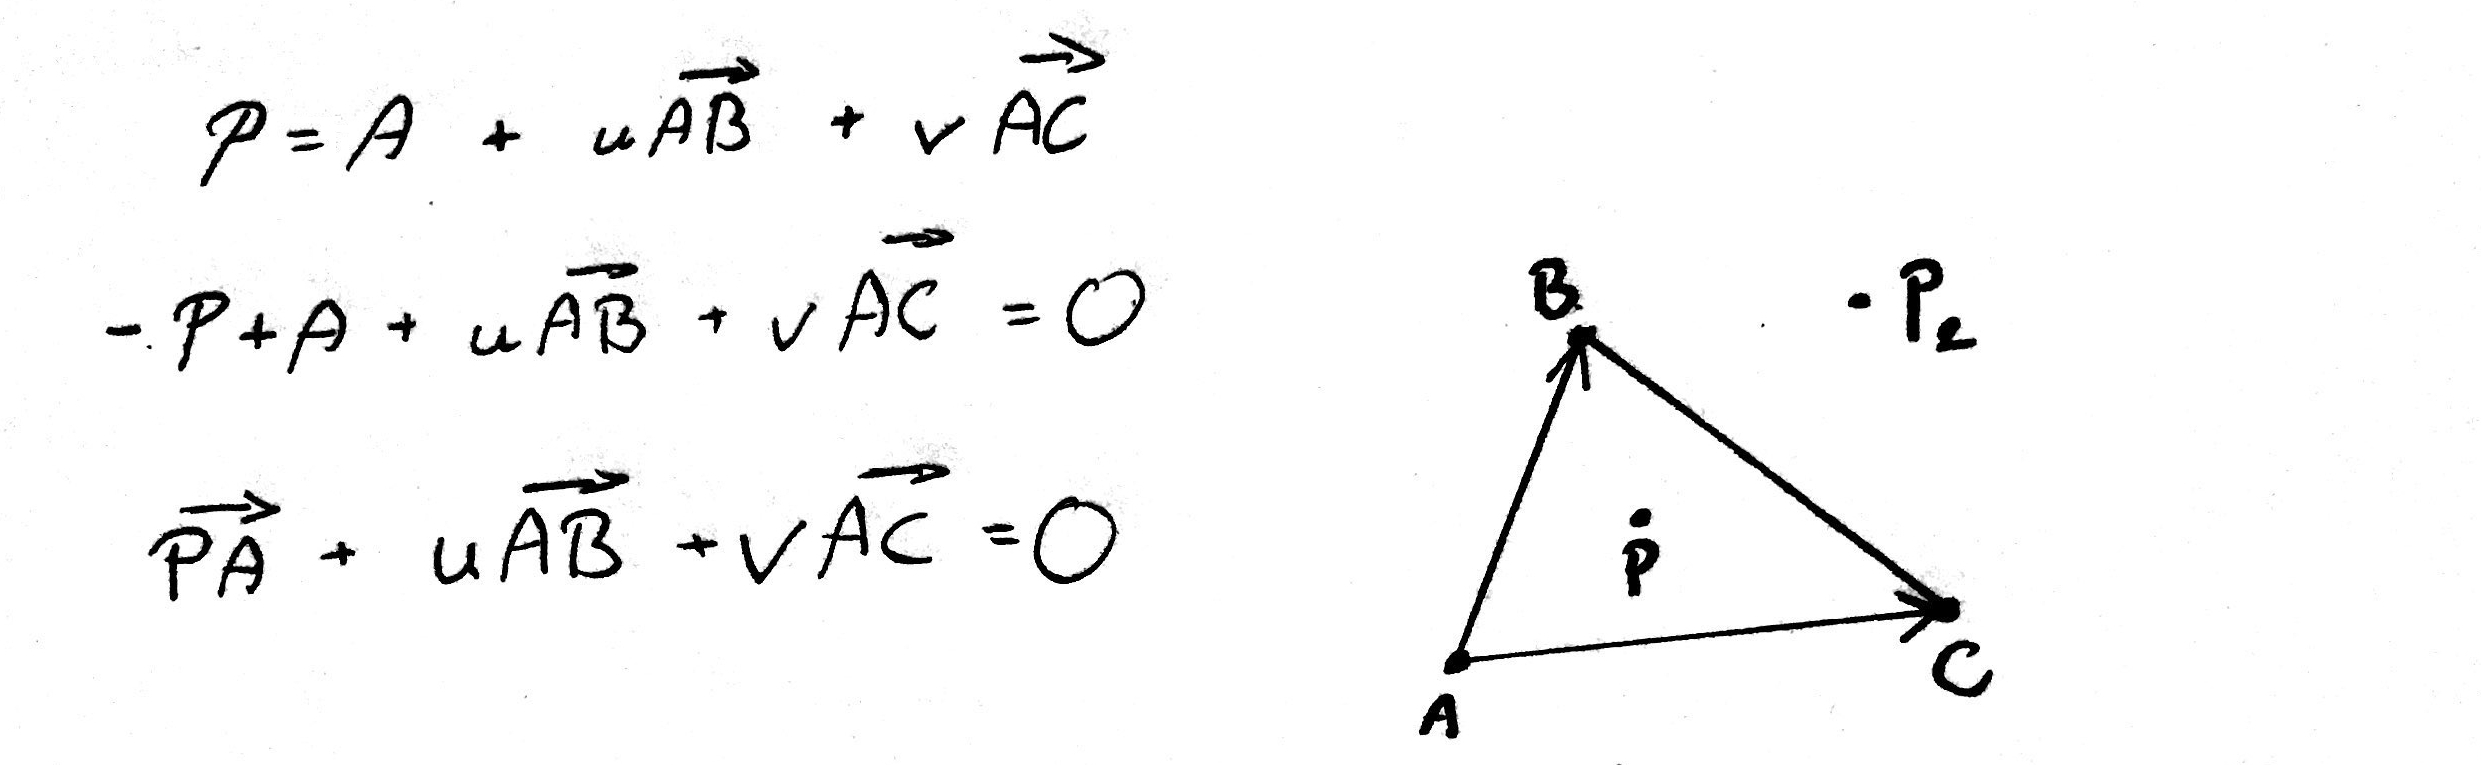 P = A + u\overrightarrow{AB} + v\overrightarrow{AC}
-P + A + u\overrightarrow{AB} + v\overrightarrow{AC} = 0
\overrightarrow{PA} + u\overrightarrow{AB} + v\overrightarrow{AC} = 0
B
P₂
P
C
A